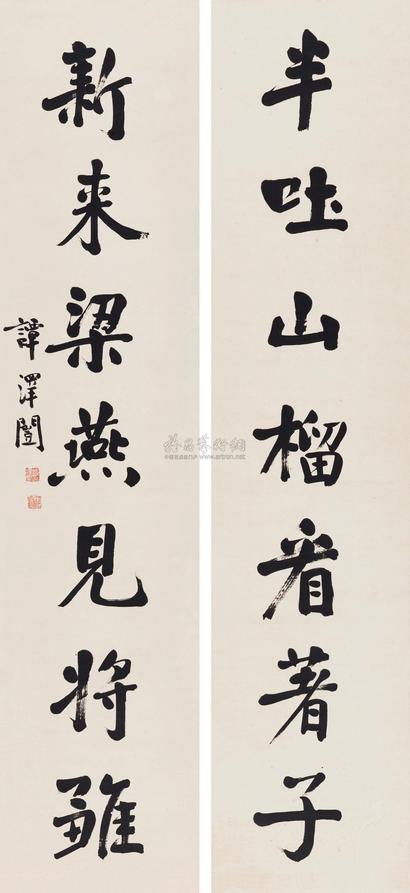 半吐山榴看著子
新来梁燕見將雛
譚澤闓
雅昌艺术网
www.artron.net